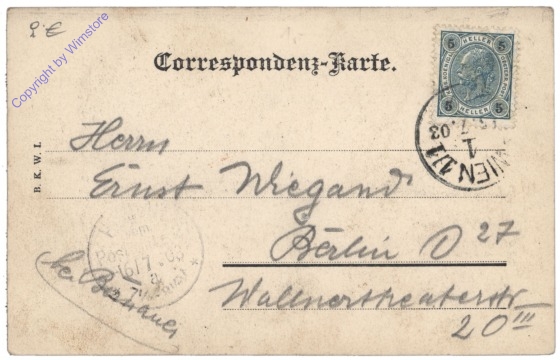 2.€
Copyright by Wimstore
Correspondenz-Karte.
5 HELLER 5
5 HELLER 5
15.7.03
1
WIEN 1/1
Herrn
Ernst Wiegand
Berlin O 27
Wallnertheaterstr
20 III
B. K. W. I.
Post
16/7.03
bei